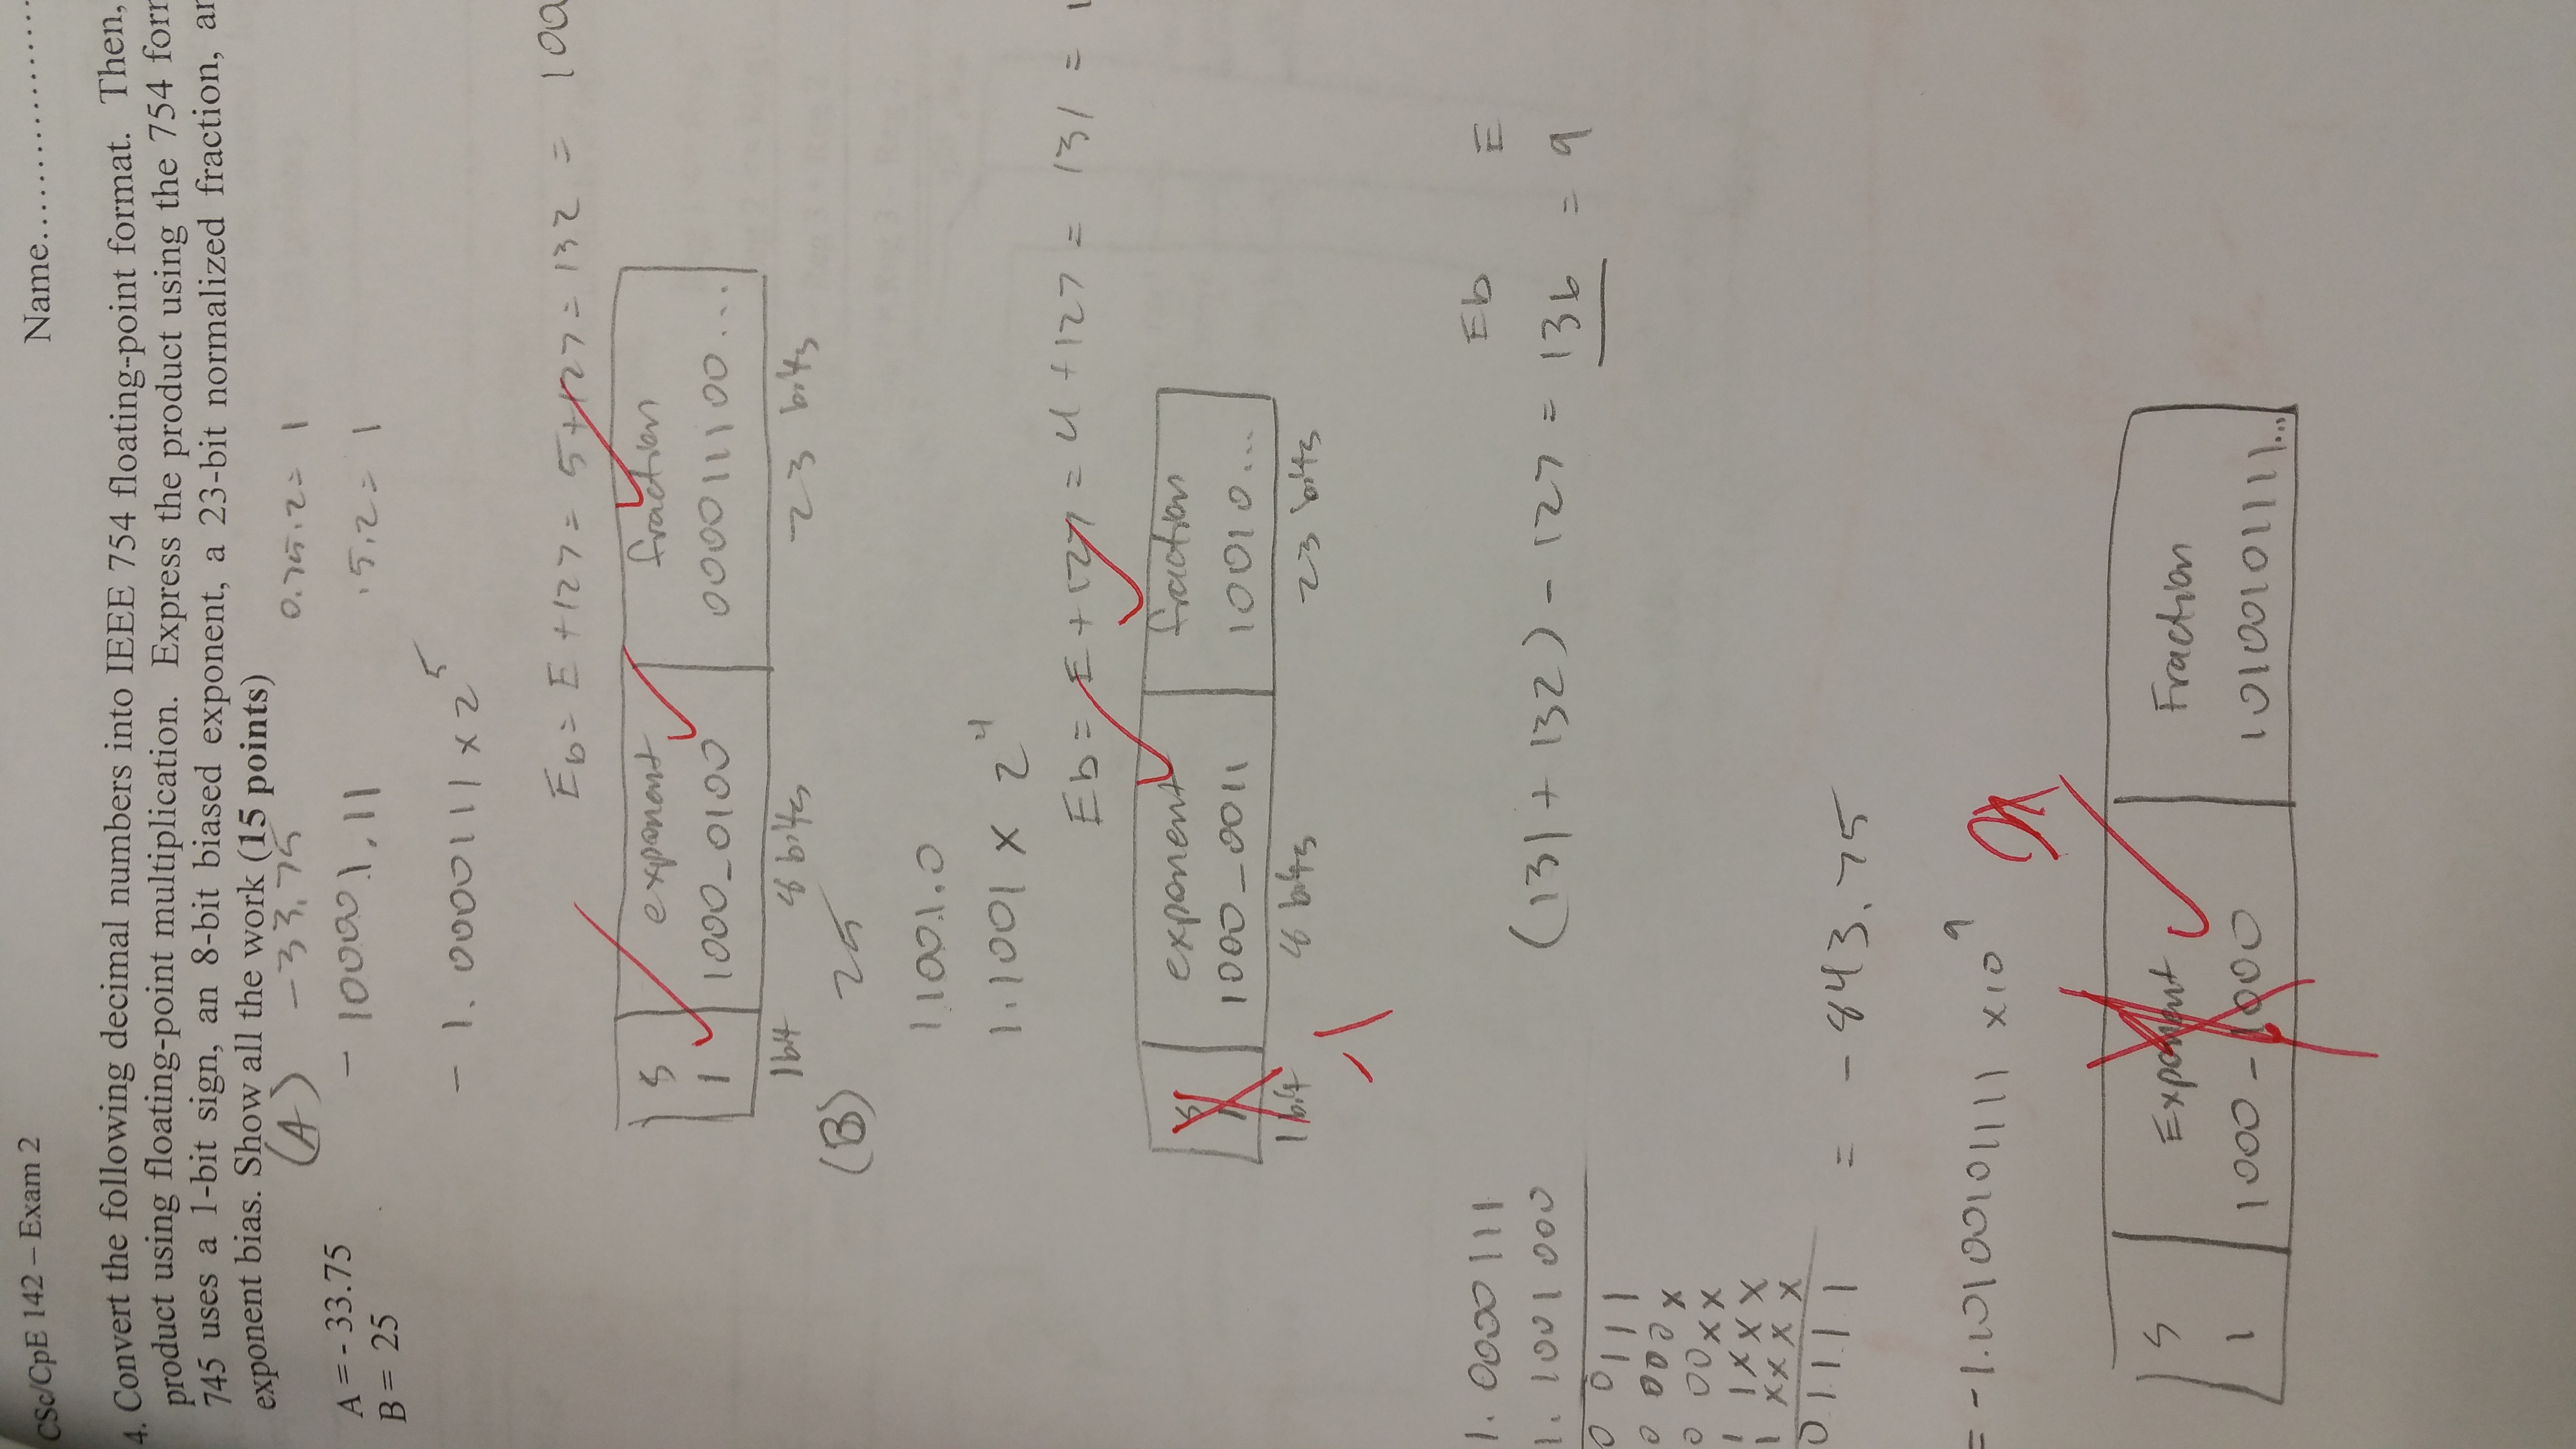 CSc/CpE 142 – Exam 2
Name..................
4. Convert the following decimal numbers into IEEE 754 floating-point format. Then,
product using floating-point multiplication. Express the product using the 754 forr
745 uses a 1-bit sign, an 8-bit biased exponent, a 23-bit normalized fraction, ar
exponent bias. Show all the work (15 points)
A = - 33.75
B = 25
(A) -33.75
0.75.2= 1
- 100001.11
.5.2= 1
- 1.0000111 x 2^5
Eb= E +127= 5+127= 132 = 100
S exponent fraction
1 1000_0100 000011100...
1bit 8 bits 23 bits
(B) 25
11001.0
1.1001 x 2^4
Eb= E+127 = 4+127 = 131 = 1
S exponent fraction
1 1000_0011 10010...
1bit 8 bits 23 bits
-1
1. 0000111
1. 1001000
Eb E
(131 + 132) - 127 = 136 = 9
0 0111
0 000x
0 00xx
1 1xxx
1 xxxx
01111 = -843.75
= -1.10100101111 x10^9
S Exponent Fraction
1 1000-1000 10100101111...